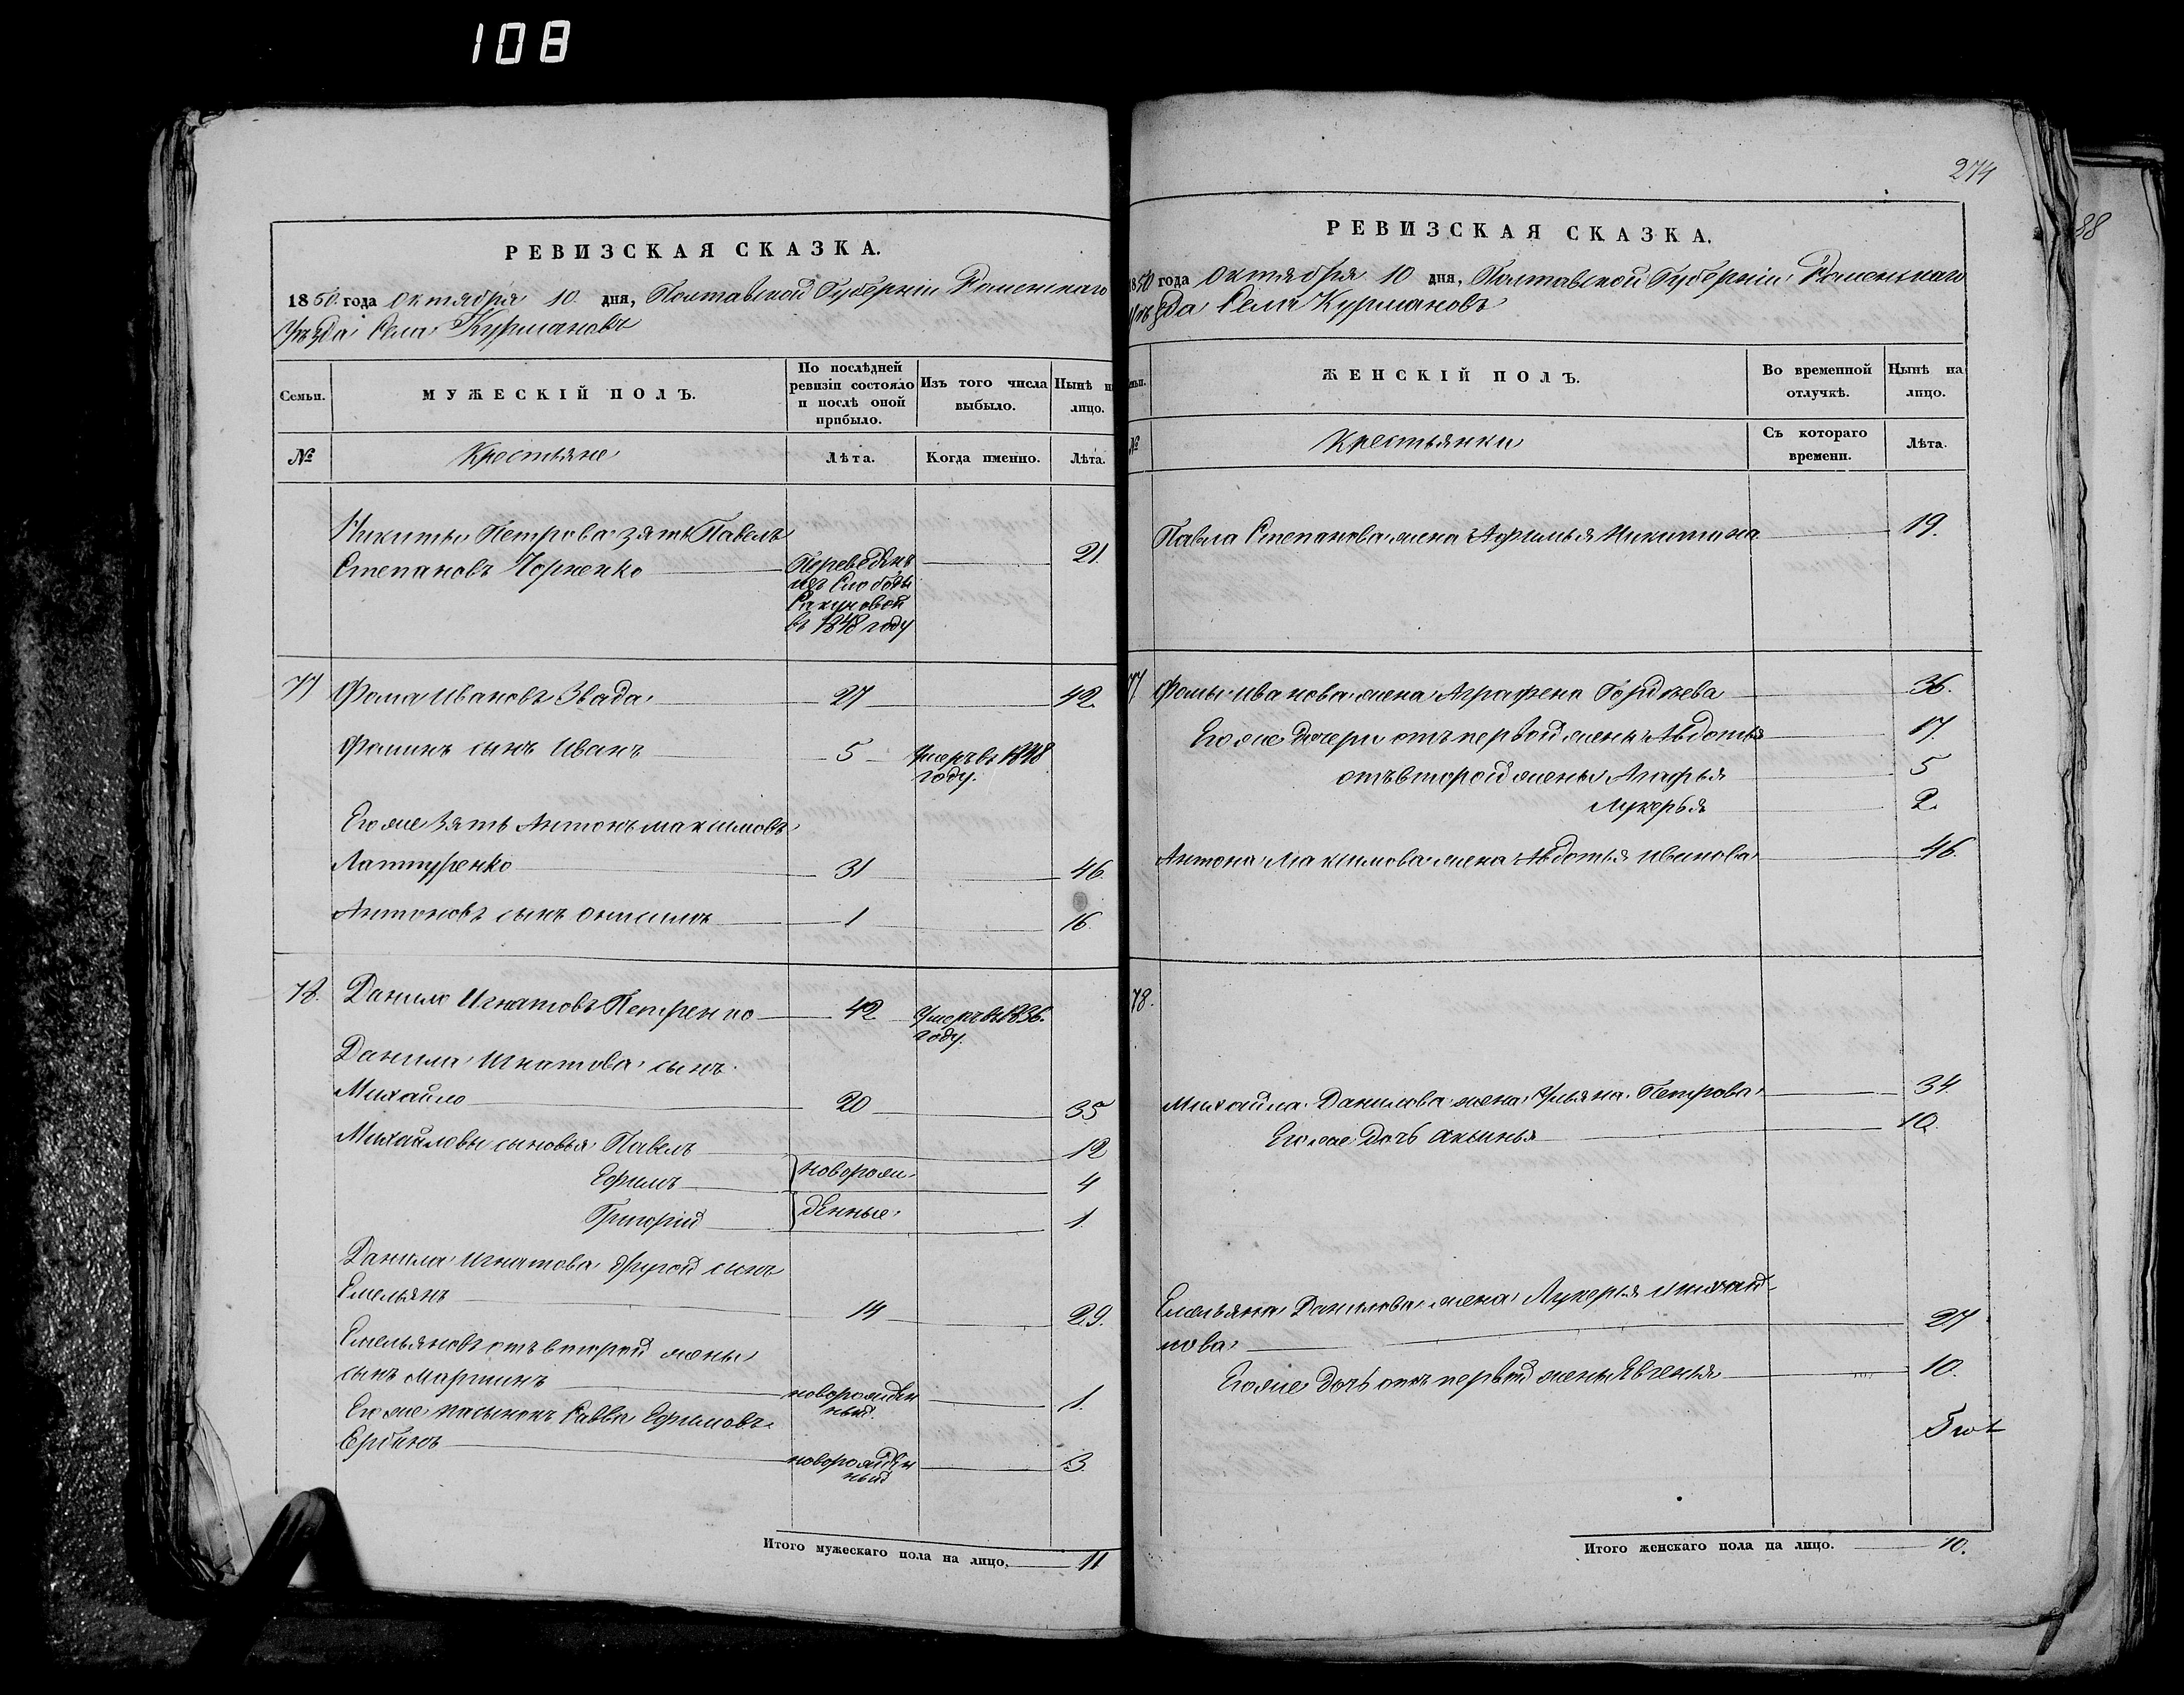 108
РЕВИЗСКАЯ СКАЗКА.
1850 года Октября 10 дня, Полтавской Губерніи Роменскаго
Уѣзда Села Курмановъ
Семьи.
МУЖЕСКІЙ ПОЛЪ.
По послѣдней ревизіи состояло и послѣ оной прибыло.
Изъ того числа выбыло.
Нынѣ на лицо.
№
Крестьяне
Лѣта.
Когда именно.
Лѣта.
Никиты Петрова зять Павелъ
Степановъ Чорненко 21.
Переведенъ
изъ Слободы
въ 1848 году
77 Фома Ивановъ Звада 27 42.
Фоминъ сынъ Иванъ 5 Умеръ въ 1848
году.
Его же зять Антонъ Максимовъ
31 46.
Антоновъ сынъ Онисимъ 1 16.
78. Данило Игнатовъ Петренко 42 Умеръ въ 1836.
году.
Данила Игнатова сынъ
Михайло 20 35
Михайловы сыновья Павелъ 12
новорож-
Ефимъ 4
денные
Григорій 1.
Данила Игнатова другой сынъ
Емельянъ 14 29.
Емельяновъ отъ второй жены
сынъ Мартинъ новорожден
ный. 1.
Его же пасынокъ Савва Ефимовъ
новорожден
ный 3.
Итого мужескаго пола на лицо. 11
274
88
РЕВИЗСКАЯ СКАЗКА.
1850 года Октября 10 дня, Полтавской Губерніи Роменскаго
Уѣзда Села Курмановъ
Семьи.
ЖЕНСКІЙ ПОЛЪ.
Во временной отлучкѣ.
Нынѣ на лицо.
№
Крестьянки
Съ котораго времени.
Лѣта.
Павла Степанова жена Афимья Никитина 19.
77. Фомы Иванова жена Аграфена Гордѣева 36.
Его же дочери отъ первой жены Авдотья 17.
отъ второй жены Агафья 5
Лукерья 2.
Антона Максимова жена Авдотья Иванова 46.
78.
Михайла Данилова жена Ульяна Петрова 34.
Его же дочь Аксинья 10.
Емельяна Данилова жена Лукерья
нова 27
Его же дочь отъ первой жены Евгенья 10.
Итого женскаго пола на лицо. 10.